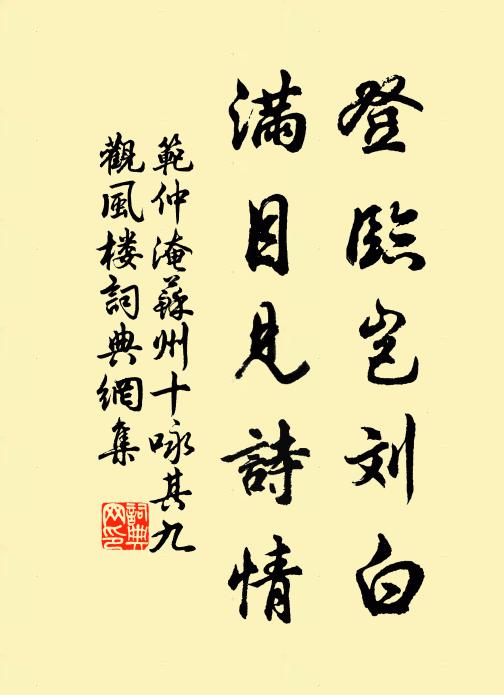 登臨岂刘白
滿目見詩情
範仲淹蘇州十咏其九
觀風楼詞典網集
詞典
网印